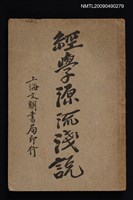 NMTL20090490279
經學源流淺說
上海文明書局印行